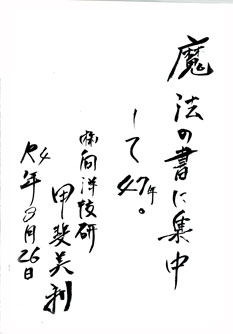 魔法の書に集中
して47年。
㈱向洋技研
甲斐美利
R4年8月26日